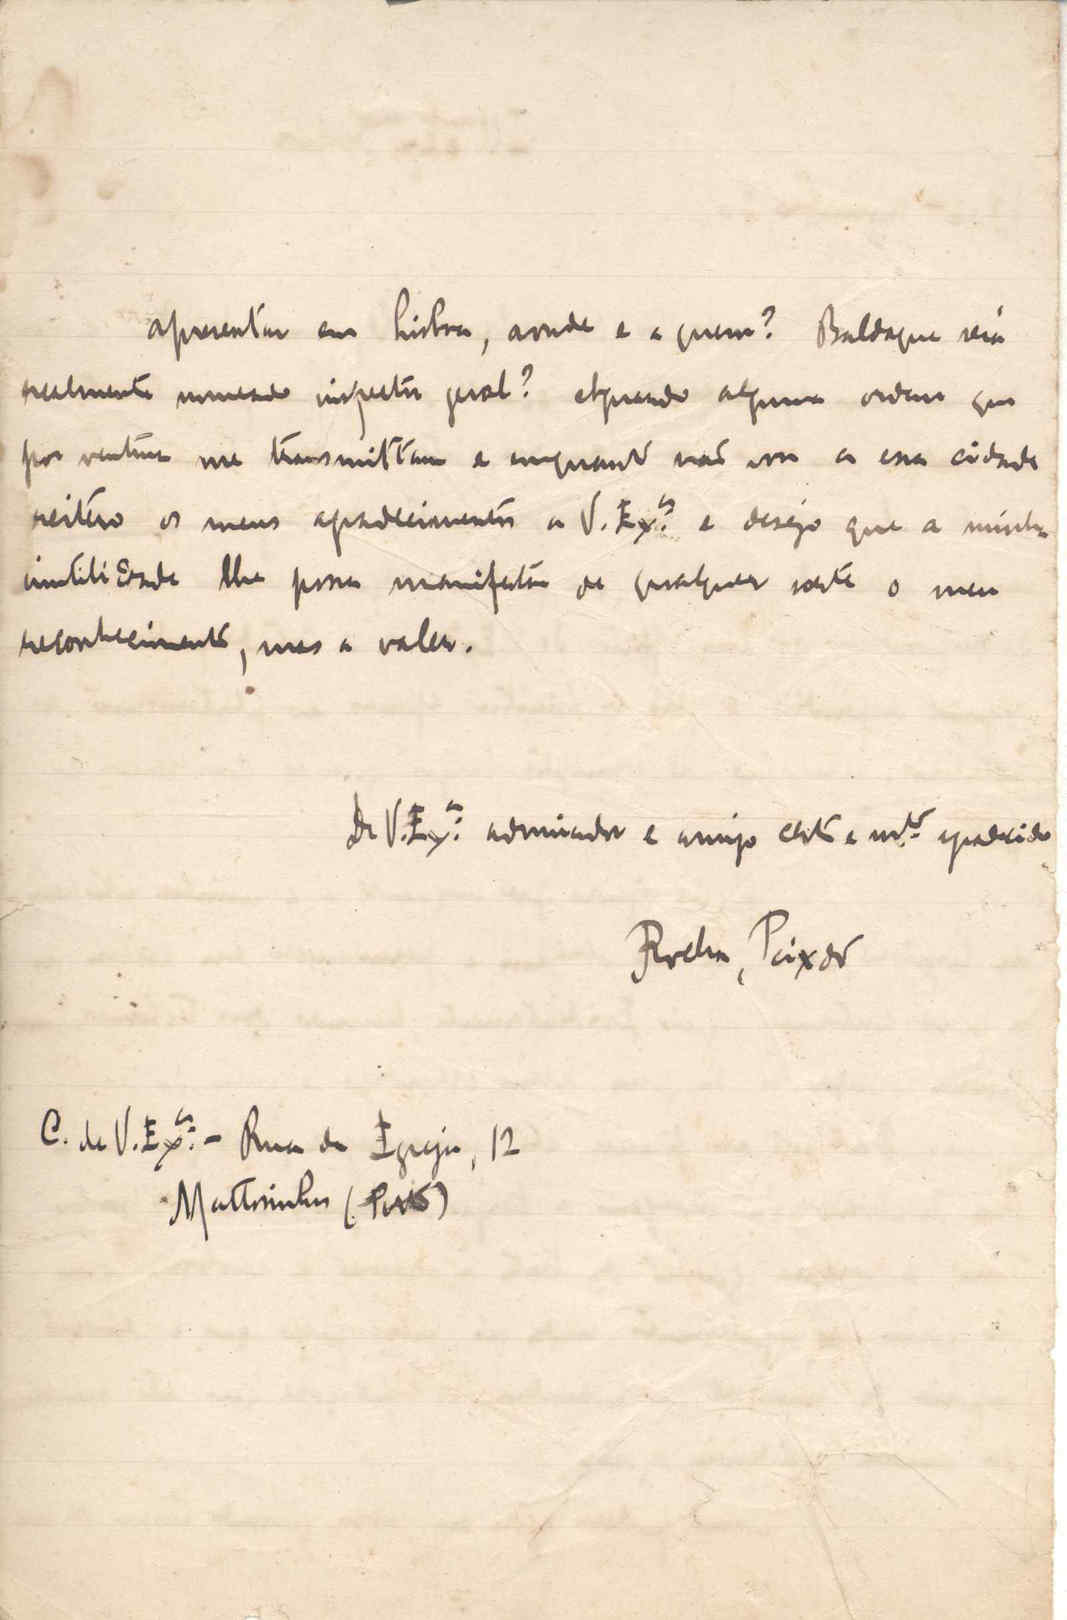 apresentar em Lisboa, aonde e a quem? Baldaque será
realmente nomeado inspector geral? Aguardo alguma ordem que
por ventura me transmittam e emquanto não vou a essa cidade
reitero os meus agradecimentos a V. Exª. e desejo que a minha
inutilidade lhe possa manifestar de qualquer sorte o meu
reconhecimento, mas a valer.
De V. Exª. admirador e amigo certo e mtº. agradecido
Rocha Peixoto
C. de V. Exª. - Rua da Egreja, 12
Mattosinhos (Porto)